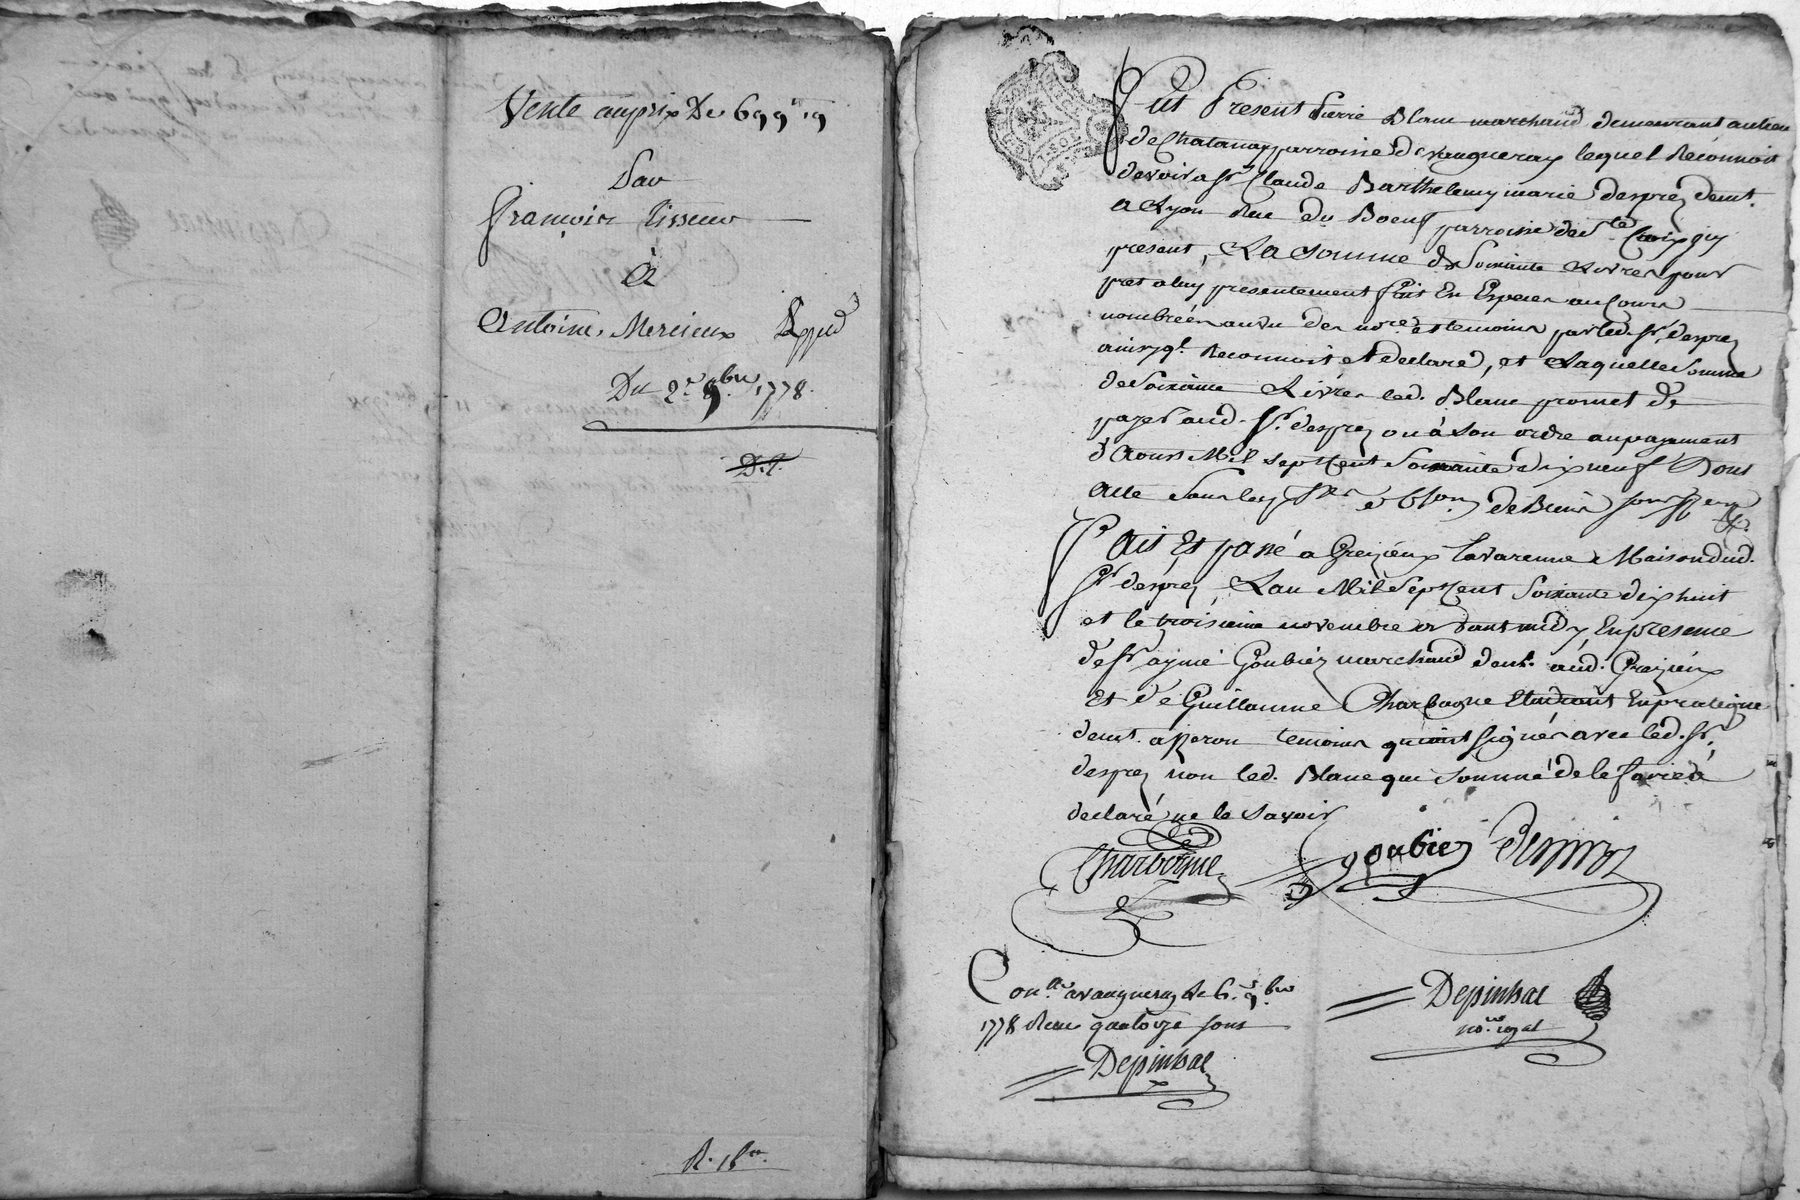 Vente au prix De 699ᵗᵗ 19
Par
françois Tisseur
à
Antoine Mercieux
Du 2ᵉ 9ᵇʳᵉ 1778.
R. 15ˢ.
Fut Present Pierre Blanc marchand demeurant au lieu
de Chatanay parroisse de vaugneray lequel Reconnoit
devoir a Sʳ. Claude Barthelemy marie desprez demt.
a Lyon Rue du Boeuf parroisse de Sᵗᵉ Croix icy
present, La Somme de Soixante Livres pour
pret a luy presentement fait En Especes au Cours
nombréés au vu des noʳᵉˢ et temoins par led. Sʳ. desprez
ainsy qˡ. Reconnoit et declare, et Laquelle Somme
de Soixante Livres led. Blanc promet de
payer aud. Sʳ. desprez ou à Son ordre au payement
d'Aoust Mil Sept Cent Soixante dix neuf Dont
acte Sous les de Biens
Fait Et passé a Greizieux Lavarenne Maison dud.
Sʳ desprez, Lan Mil Sept Cent Soixante dix huit
et le troisieme novembre avant midy En presence
de Sʳ aymé Goubiez marchand demt. aud. Greizieux
Et de Guillaume Charbogne Etudiant En pratique
demt. temoins qui ont Signés avec led. Sʳ.
desprez non led. Blanc qui Sommé de le faire à
declaré ne le Savoir
Charbogne goubiez Desprez
Conˡˡᵉ a vaugneray le 6. 9ᵇʳᵉ
1778 Recu quatorze sous
Depinhac
noʳᵉ. royal
Depinhac